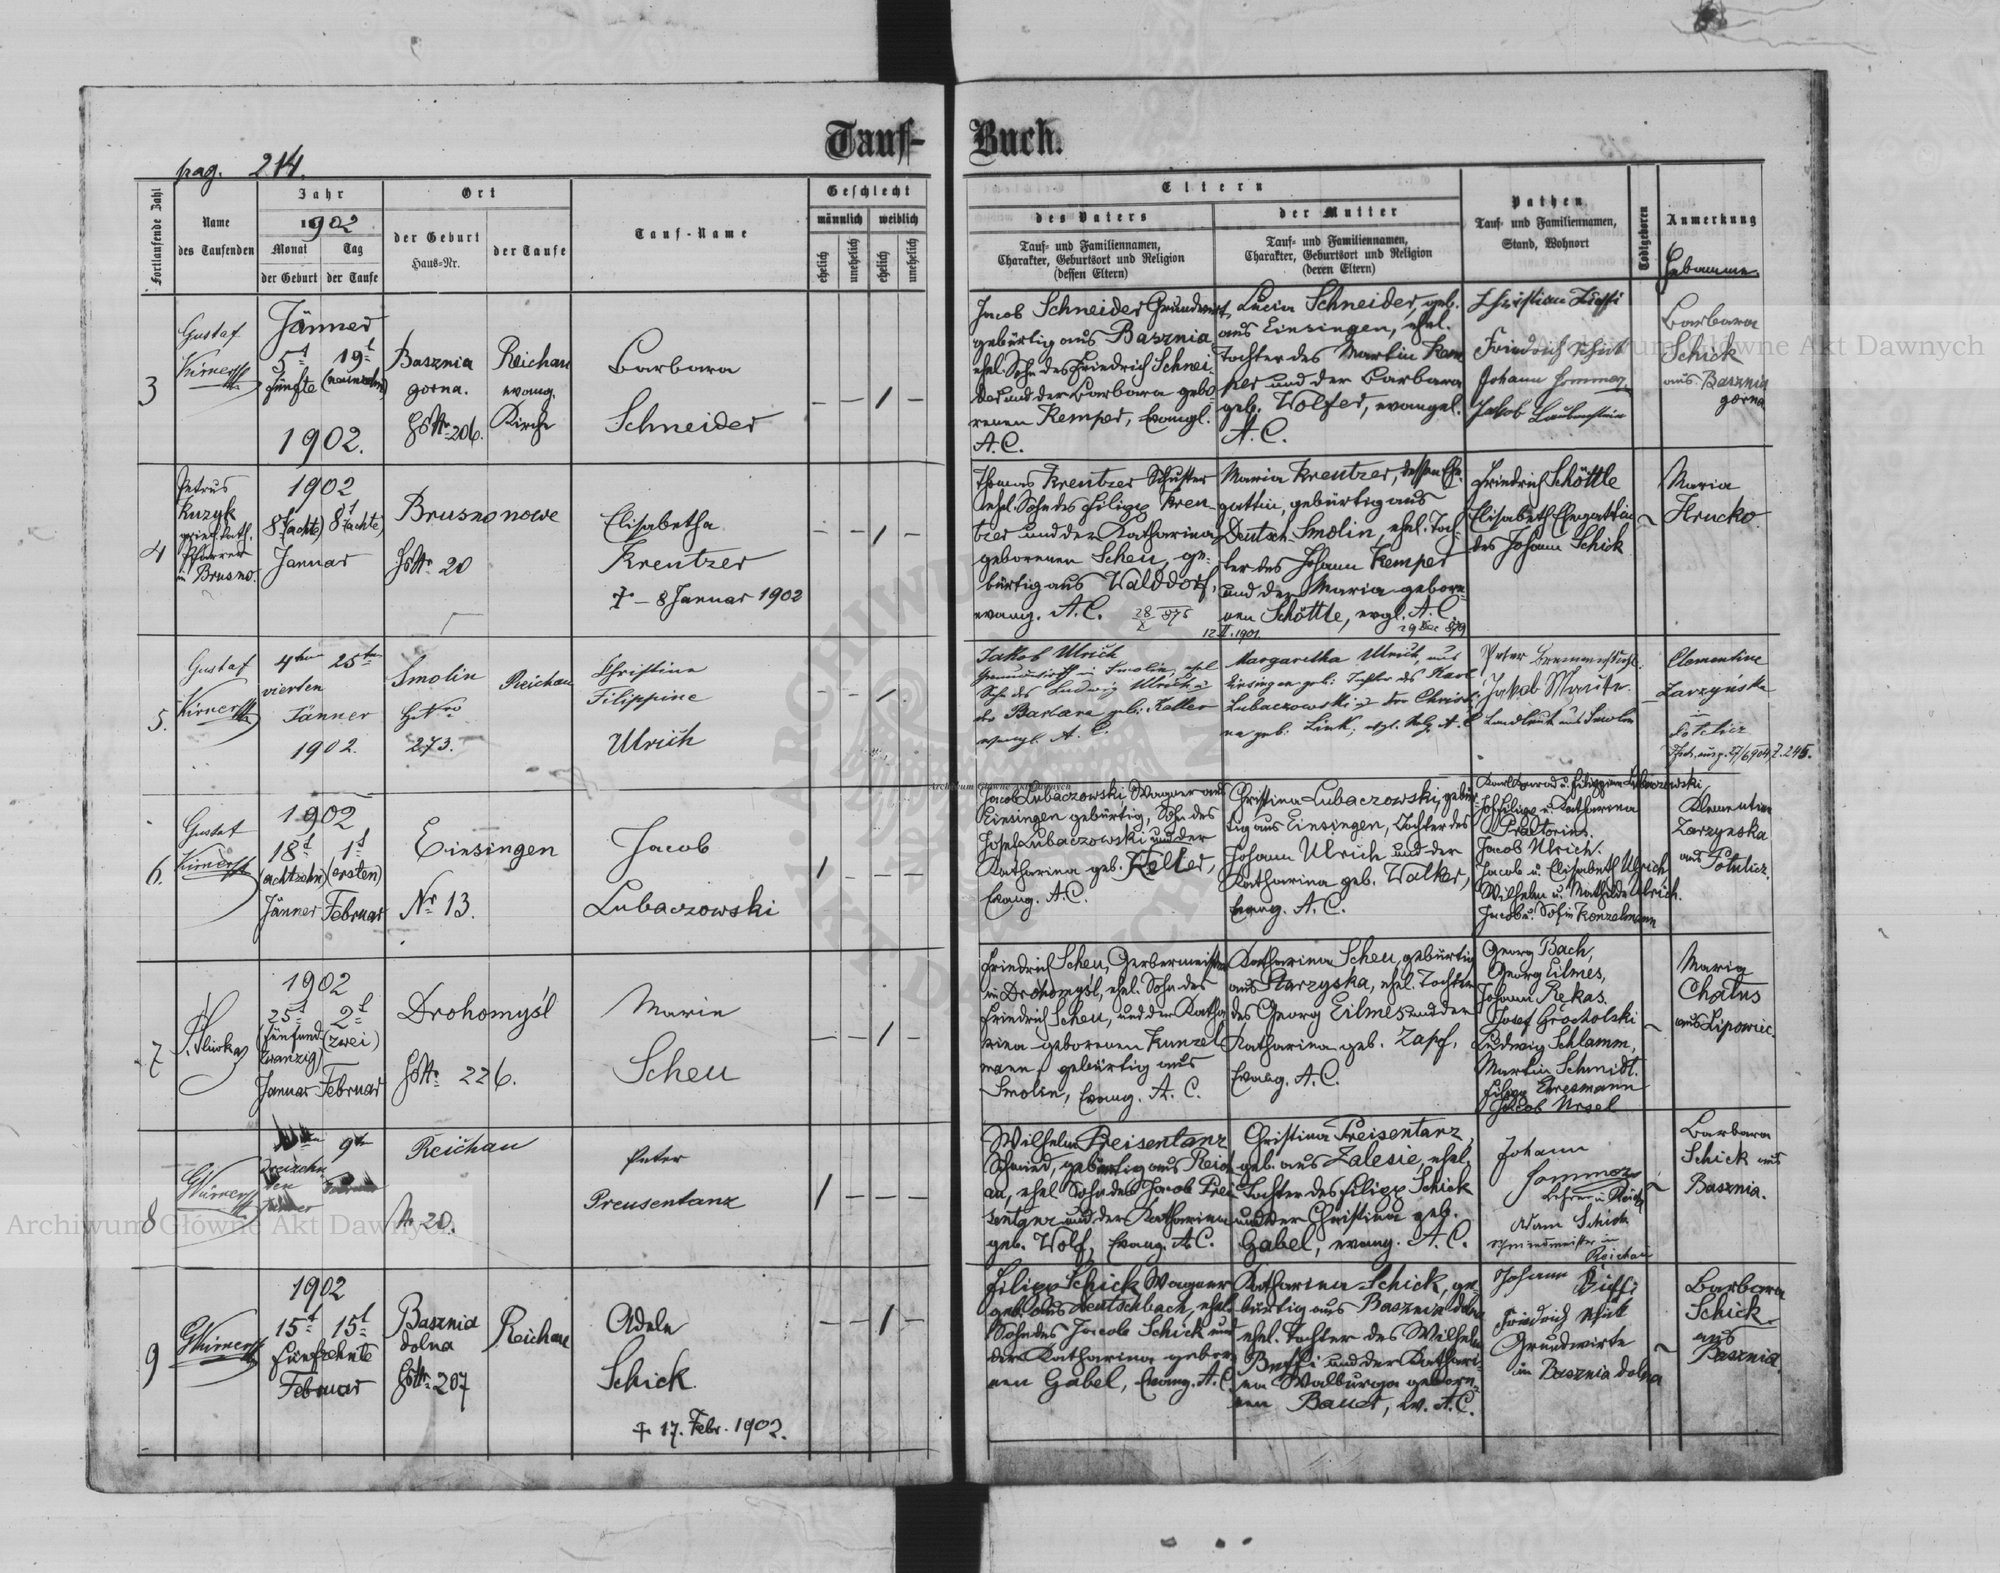 pag. 214.
Tauf-Buch.
Fortlaufende Zahl
Name
des Taufenden
Jahr
1902
Monat
Tag
der Geburt
der Taufe
Ort
der Geburt
Haus-Nr.
der Taufe
Tauf-Name
Geschlecht
männlich
weiblich
ehelich
unehelich
ehelich
unehelich
Eltern
des Vaters
Tauf- und Familiennamen,
Charakter, Geburtsort und Religion
(dessen Eltern)
der Mutter
Tauf- und Familiennamen,
Charakter, Geburtsort und Religion
(deren Eltern)
Pathen
Tauf- und Familiennamen,
Stand, Wohnort
Todtgeboren
Anmerkung
Hebamme
3
Gustaf
Jänner
5t 19t
fünfte (neunzehn)
1902.
Basznia
gorna.
206.
Reichau
evang.
Kirche
Barbara
Schneider
— — 1 —
Jacob Schneider Grundwirt,
gebürtig aus Basznia
ehel. Sohn des Friedrich Schnei-
der und der Barbara gebo-
renen Kemper, Evangl.
A.C.
Lucia Schneider, geb.
aus Einsingen, ehel.
Tochter des Martin Kem
per und der Barbara
geb. Wolfer, evangel.
A.C.
Christian
Friedrich Schick
Johann
Jakob
Barbara
Schick
aus Basznia
gorna
4
Petrus
Kuzyk
griech. kath.
Pfarrer
in Brusno.
1902
8t (achte) 8t (achte)
Januar
Brusno nowe
20
Elisabetha
Kreutzer
† – 8 Januar 1902
— — 1 —
Thomas Kreutzer Schuster
ehel. Sohn des Filipp Kreu-
tzer und der Katharina
geborenen Scheu, ge-
bürtig aus Walddorf,
evang. A.C.
Maria Kreutzer, dessen Ehe-
gattin, gebürtig aus
Deutsch-Smolin, ehel. Toch-
ter des Johann Kemper
und der Maria gebore-
nen Schöttle, evgl. A.C.
Friedrich Schöttle
Elisabeth Ehegattin
des Johann Schick
Maria
Hrucko.
5.
Gustaf
4ten 25ten
vierten
Jänner
1902.
Smolin
273.
Reichau
Christine
Filippine
Ulrich
— — 1 —
Jakob Ulrich
in Smolin, ehel
Sohn des Ludwig Ulrich u
der Barbara geb. Keller
evangl. A.C.
12.II.1901.
Margaretha Ulrich, aus
Einsingen geb. Tochter des Karl
Lubaczowski u der Christi-
na geb. Link, evgl. Relg. A.C
Peter
Jakob Manz
Landleute aus Smolin
Clementine
Zarzyńska
Potelicz
6.
Gustaf
1902
18t 1t
(achtzehn) (ersten)
Jänner Februar
Einsingen
Nr 13.
Jacob
Lubaczowski
1 — — —
Jacob Lubaczowski Wagner aus
Einsingen gebürtig, Sohn des
Josef Lubaczowski und der
Katharina geb. Keller,
Evang. A.C.
Christina Lubaczowski, gebür-
tig aus Einsingen, Tochter des
Johann Ulrich und der
Katharina geb. Walker,
Evang. A.C.
Karl Konrad u. Filippine Lubaczowski
Joh Filipp u. Katharina
Praetorius.
Jacob Ulrich.
Jacob u. Elisabeth Ulrich
Wilhelm u. Mathilde Ulrich.
Jacob u. Sofie Konzelmann
Klementine
Zarzynska
aus Potelicz.
7
1902
25t 2t
(fünfund (zwei)
zwanzig)
Januar Februar
Drohomyśl
226.
Marie
Scheu
— — 1 —
Friedrich Scheu, Gerbermeister
in Drohomyśl, ehel. Sohn des
Friedrich Scheu, und der Katha
rina geborenen Kunzel
mann, gebürtig aus
Smolin, Evang. A.C.
Katharina Scheu, gebürtig
aus Starzyska, ehel. Tochter
des Georg Eilmes und der
Katharina geb. Zapf,
Evang. A.C.
Georg Bach,
Georg Eilmes,
Johann Rekas.
Josef Grocholski
Ludwig Schlamm,
Martin Schmidt.
Filipp Ehresmann
Jacob Ursel
Maria
Chatus
aus Lipowiec.
8
dreizehn
ten
9ten
Reichau
No 20.
Peter
Preusentanz
1 — — —
Wilhelm Preisentanz
Schmied, gebürtig aus Reich
au, ehel. Sohn des Jacob Prei
sentanz und der Katharina
geb. Wolf, Evang. A.C.
Christina Preisentanz,
geb. aus Zalesie, ehel.
Tochter des Filipp Schick
und der Christina geb.
Gabel, evang. A.C.
Johann
Lehrer in Reichau
Adam Schick
Schmiedmeister in
Reichau
Barbara
Schick aus
Basznia.
9
1902
15t 15t
fünfzehnte
Februar
Basznia
dolna
207
Reichau
Adele
Schick.
† 17. Febr. 1902.
— — 1 —
Filipp Schick Wagner
geb. aus Deutschbach, ehel.
Sohn des Jacob Schick und
der Katharina gebor
nen Gabel, Evang. A.C.
Katharina Schick, ge-
bürtig aus Basznia dolna
ehel. Tochter des Wilhelm
und der Kathari-
na Walburga gebore-
nen Bauer, Ev. A.C.
Johann
Friedrich Schick
Grundwirte
in Basznia dolna
Barbara
Schick
aus
Basznia
Archiwum Główne Akt Dawnych
Archiwum Główne Akt Dawnych
Archiwum Główne Akt Dawnych